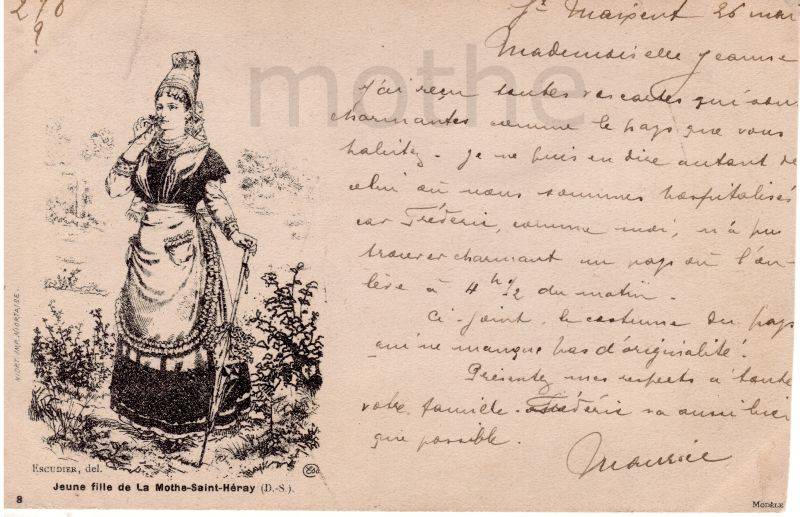 276
?
mothe
St Maixent 26 mai
Mademoiselle Jeanne
J'ai reçu toutes vos cartes qui sont
charmantes comme le pays que vous
habitez. Je ne puis en dire autant de
celui où nous sommes hospitalisés
car Frédéric, comme moi, n'a pu
trouver charmant un pays où l'on se
lève à 4 h 1/2 du matin.
Ci-joint le costume du pays
qui ne manque pas d'originalité.
Présentez mes respects à toute
votre famille. Frédéric va aussi bien
que possible.
Maurice
NIORT. IMP. NIORTAISE.
ESCUDIER, del.
Jeune fille de La Mothe-Saint-Héray (D.-S.).
8
MODÈLE